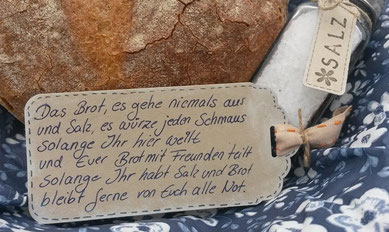 SALZ
Das Brot, es gehe niemals aus
und Salz, es würze jeden Schmaus
solange Ihr hier weilt
und Euer Brot mit Freunden teilt
Solange Ihr habt Salz und Brot
bleibt ferne von Euch alle Not.